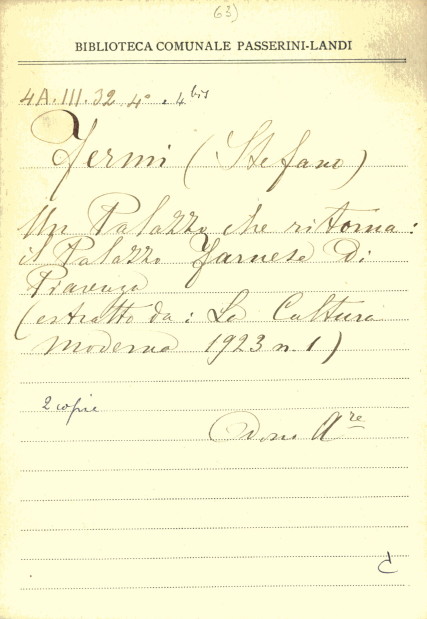 63)
BIBLIOTECA COMUNALE PASSERINI-LANDI
4A.III.32 4° . 4bis
Fermi (Stefano)
Un Palazzo che ritorna:
il Palazzo Farnese di
Piacenza
(estratto da: La Cultura
Moderna 1923 n. 1)
2 copie
Dono A.re
C